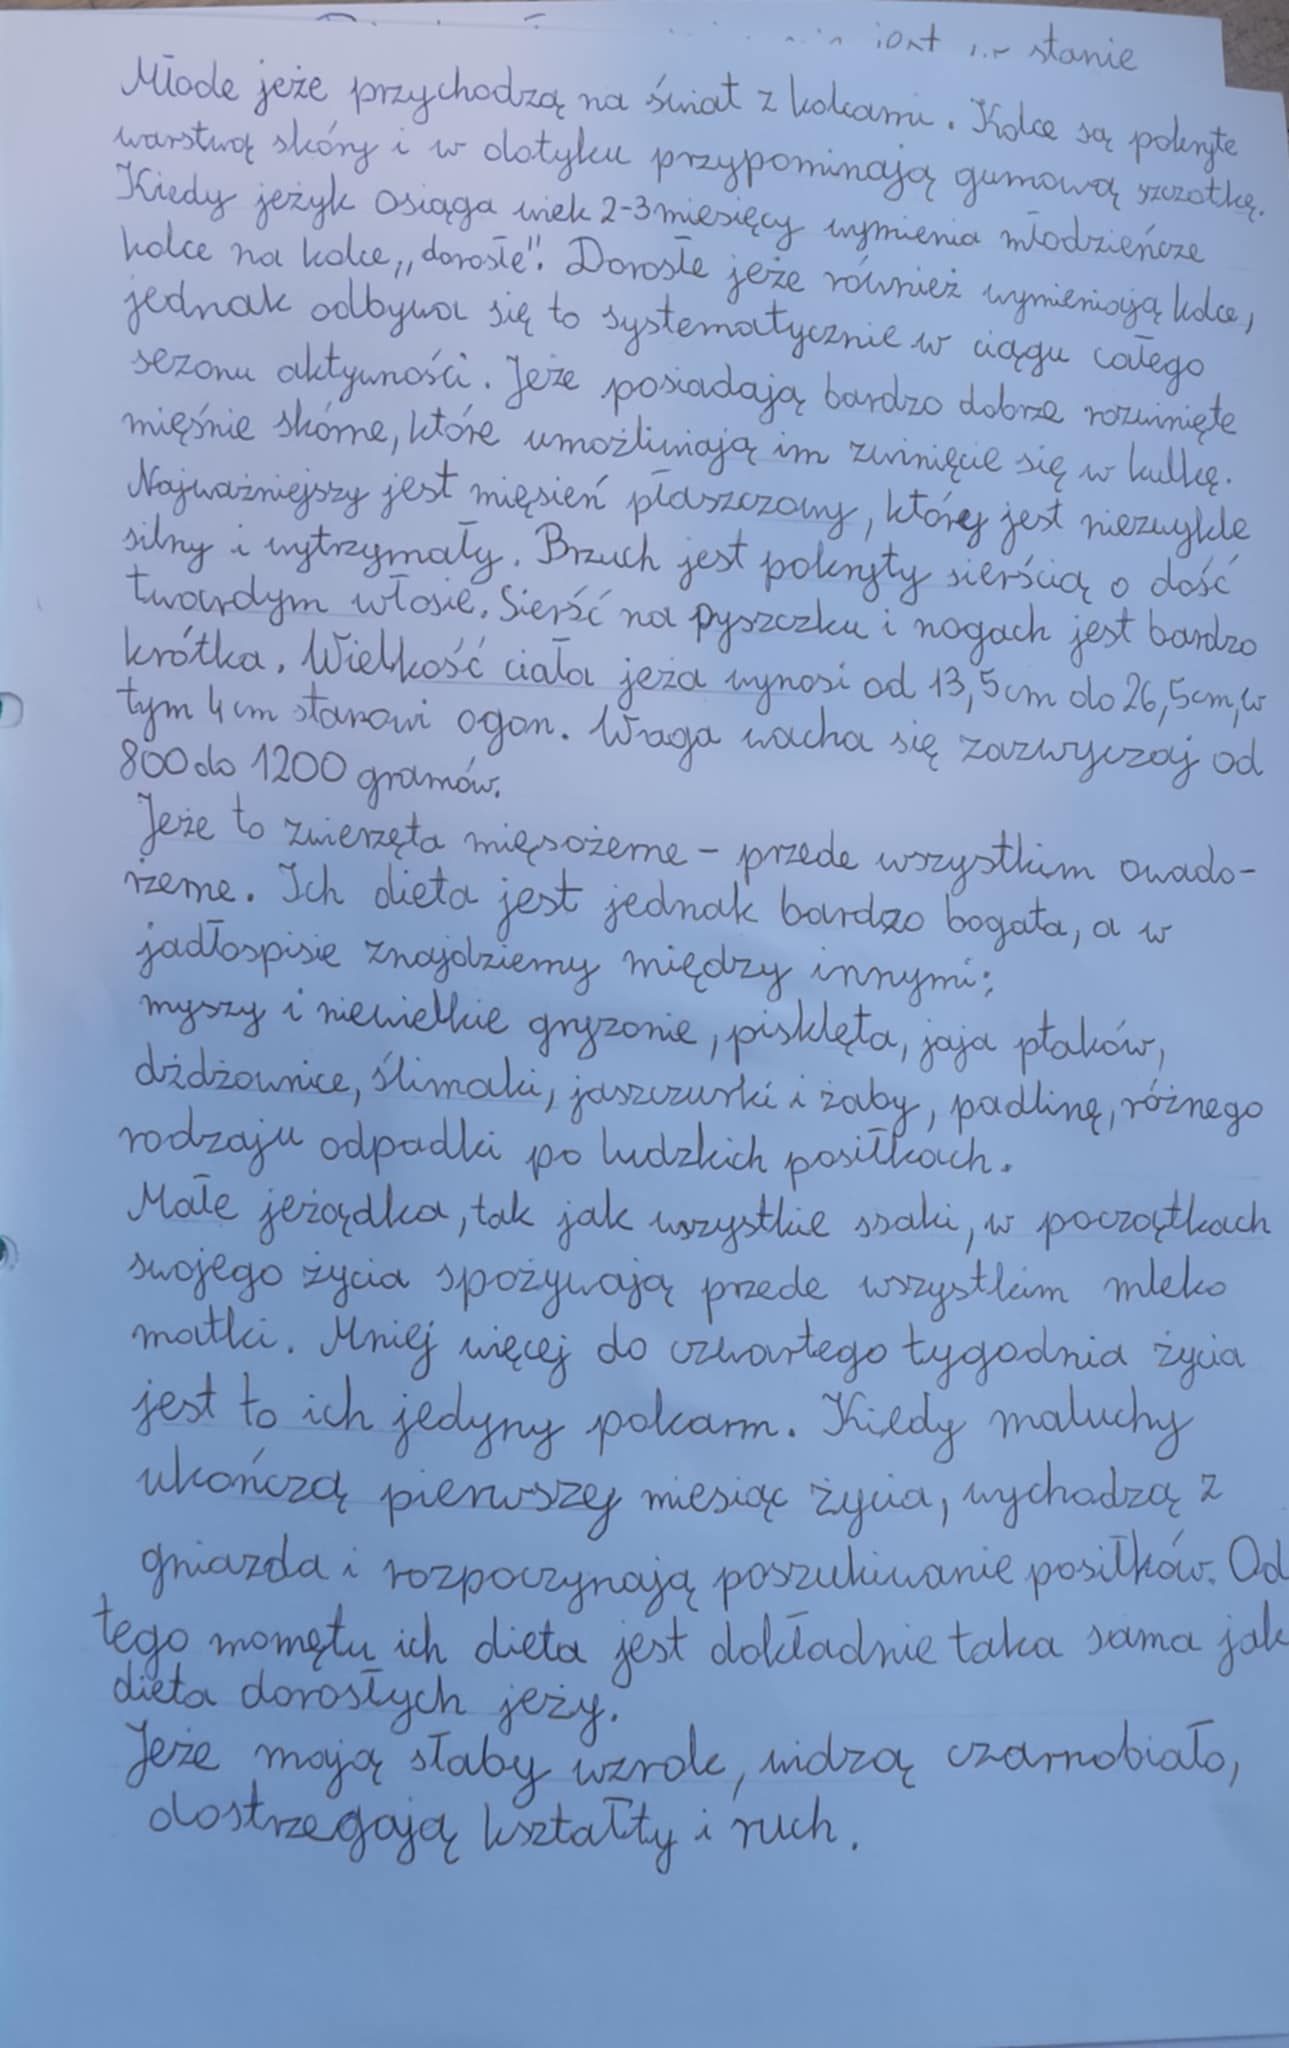 stanie
Młode jeże przychodzą na świat z kolcami. Kolce są pokryte
warstwą skóry i w dotyku przypominają gumową szczotkę.
Kiedy jeżyk osiąga wiek 2-3 miesięcy wymienia młodzieńcze
kolce na kolce „dorosłe". Dorosłe jeże również wymieniają kolce,
jednak odbywa się to systematycznie w ciągu całego
sezonu aktywności. Jeże posiadają bardzo dobrze rozwinięte
mięśnie skórne, które umożliwiają im zwinięcie się w kulkę.
Najważniejszy jest mięsień płaszczowy, który jest niezwykle
silny i wytrzymały. Brzuch jest pokryty sierścią o dość
twardym włosie. Sierść na pyszczku i nogach jest bardzo
krótka. Wielkość ciała jeża wynosi od 13,5cm do 26,5cm, w
tym 4 cm stanowi ogon. Waga wacha się zazwyczaj od
800 do 1200 gramów.
Jeże to zwierzęta mięsożerne - przede wszystkim owado-
żerne. Ich dieta jest jednak bardzo bogata, a w
jadłospisie znajdziemy między innymi:
myszy i niewielkie gryzonie, pisklęta, jaja ptaków,
dżdżownice, ślimaki, jaszczurki i żaby, padlinę, różnego
rodzaju odpadki po ludzkich posiłkach.
Małe jeżądka, tak jak wszystkie ssaki, w początkach
swojego życia spożywają przede wszystkim mleko
matki. Mniej więcej do czwartego tygodnia życia
jest to ich jedyny pokarm. Kiedy maluchy
ukończą pierwszy miesiąc życia, wychodzą z
gniazda i rozpoczynają poszukiwanie posiłków. Od
tego momętu ich dieta jest dokładnie taka sama jak
dieta dorosłych jeży.
Jeże mają słaby wzrok, widzą czarnobiało,
dostrzegają kształty i ruch.